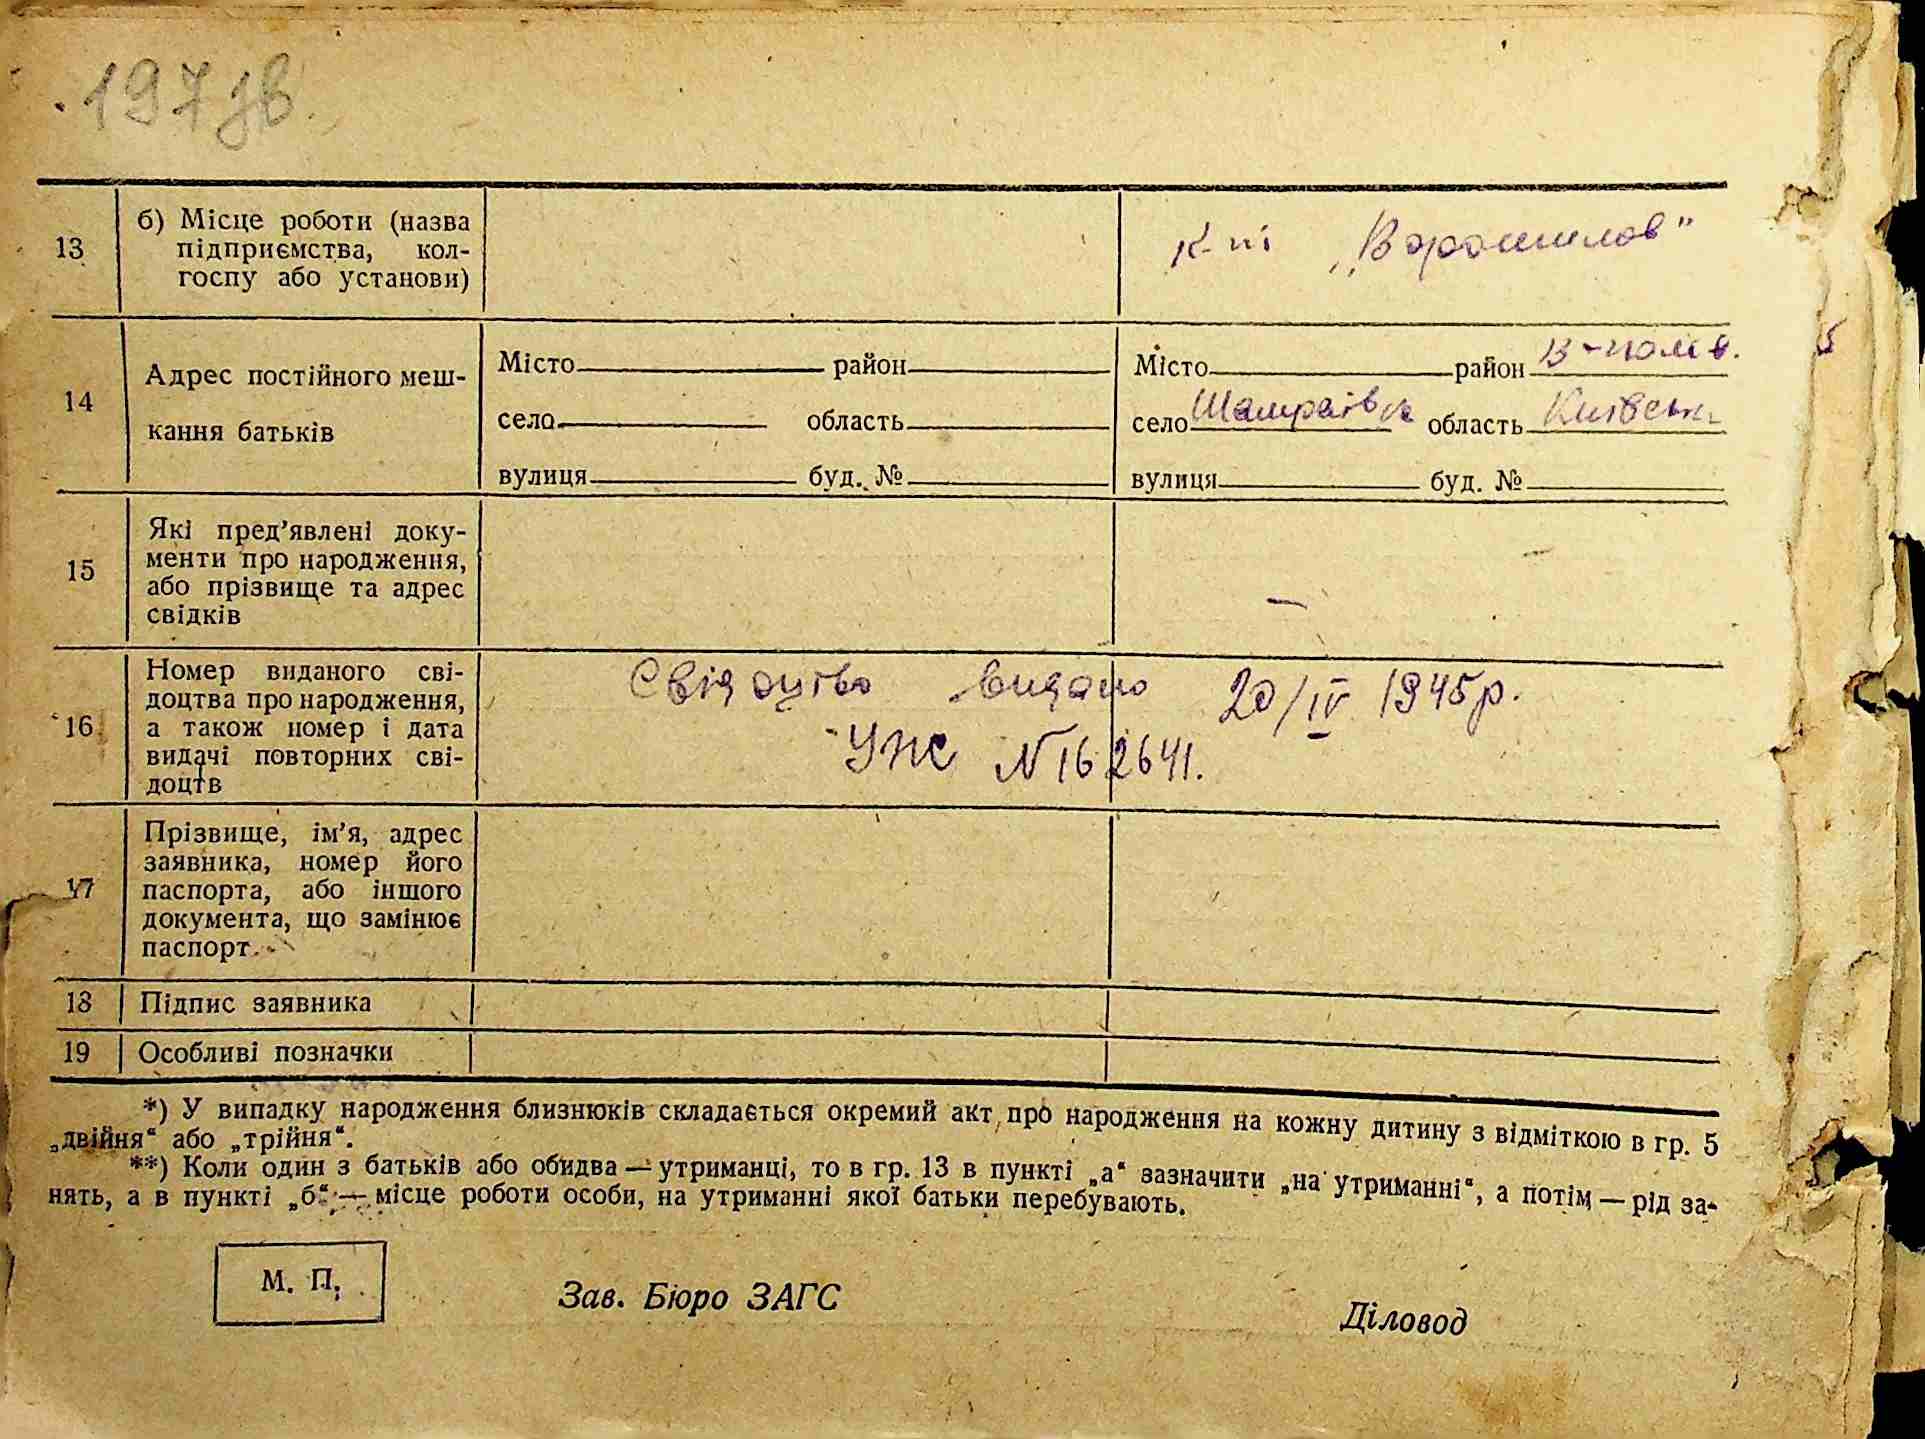 197зв.
13
б) Місце роботи (назва
підприємства, кол-
госпу або установи)
к-п „Ворошилов"
14
Адрес постійного меш-
кання батьків
Місто район
село область
вулиця буд. №
Місто район
село Шамраївка область Київськ
вулиця буд. №
15
Які пред'явлені доку-
менти про народження,
або прізвище та адрес
свідків
—
16
Номер виданого сві-
доцтва про народження,
а також номер і дата
видачі повторних сві-
доцтв
Свідоцтво видано 20/IV 1945р.
УЖ №162641.
17
Прізвище, ім'я, адрес
заявника, номер його
паспорта, або іншого
документа, що замінює
паспорт
18 Підпис заявника
19 Особливі позначки
*) У випадку народження близнюків складається окремий акт про народження на кожну дитину з відміткою в гр. 5
„двійня“ або „трійня“.
**) Коли один з батьків або обидва — утриманці, то в гр. 13 в пункті „а“ зазначити „на утриманні“, а потім — рід за-
нять, а в пункті „б“ — місце роботи особи, на утриманні якої батьки перебувають.
М. П.
Зав. Бюро ЗАГС
Діловод